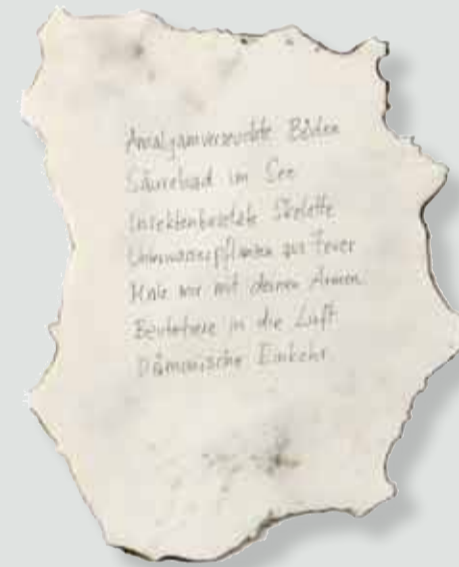 Amalgamverseuchte Böden
Säurebad im See
Insektenbesetzte Skelette
Unterwasserpflanzen aus Feuer
Male mir mit deinen Armen
Beutetiere in die Luft
Dämonische Einkehr